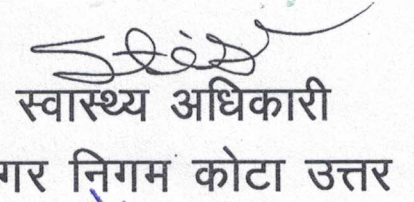 स्वास्थ्य अधिकारी
गर निगम कोटा उत्तर